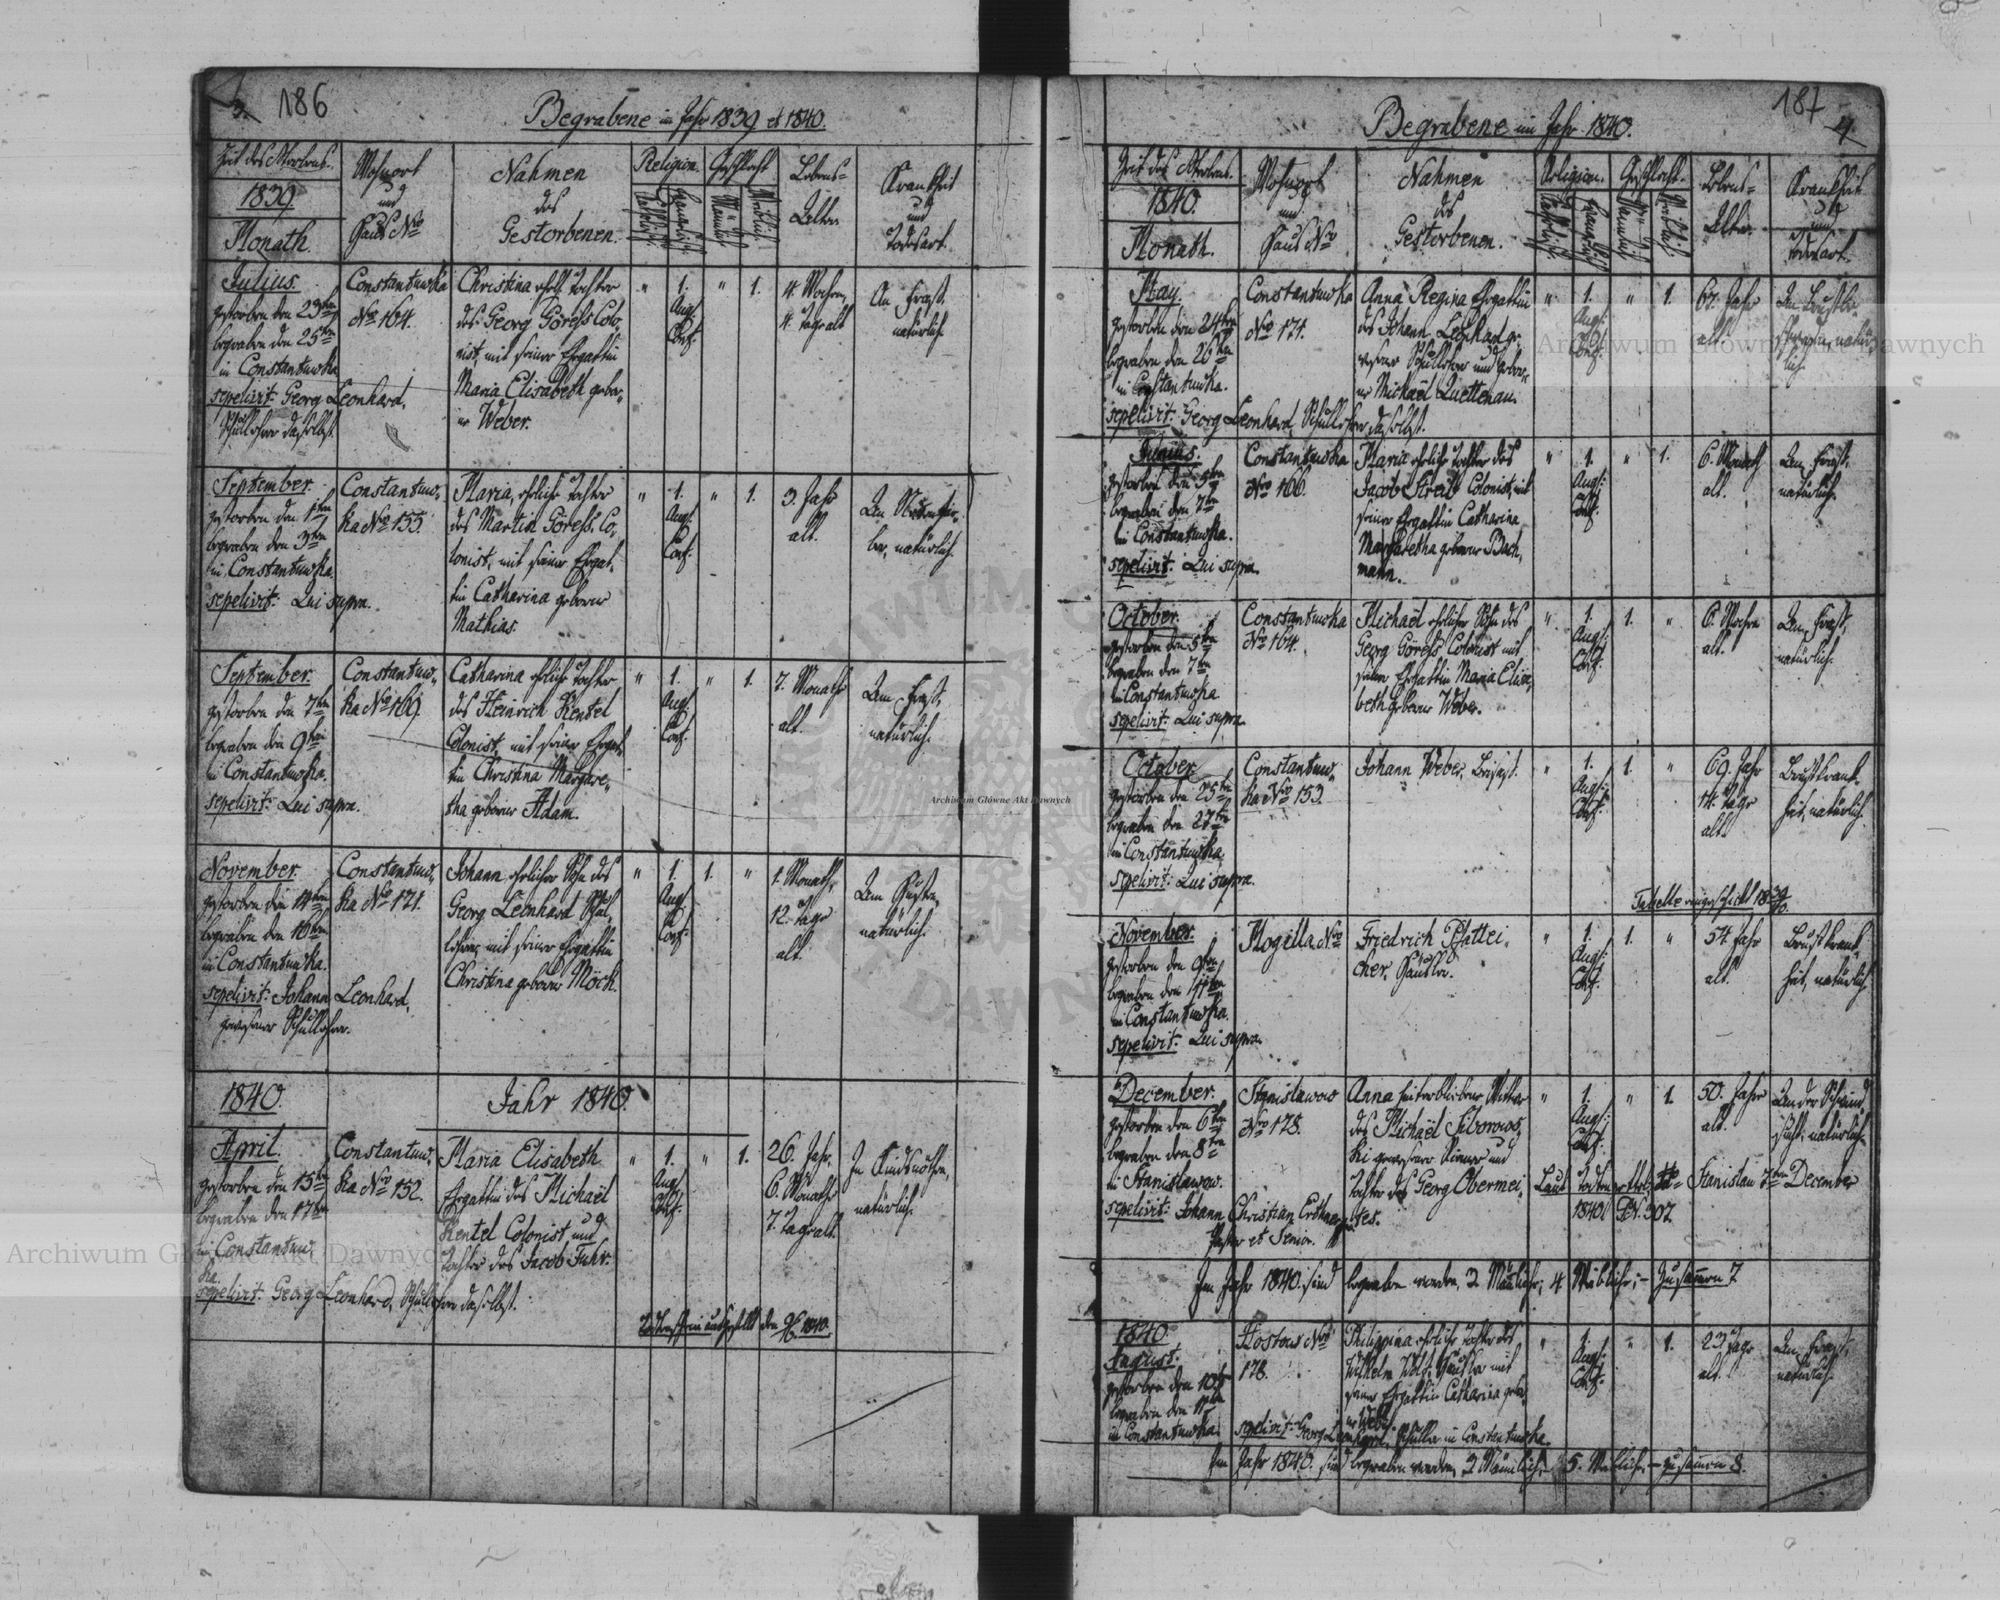 3. 186
Begrabene im Jahr 1839 et 1840.
Zeit des Sterbens.
1839.
Monath.
Wohnort
und
Haus Nro
Nahmen
des
Gestorbenen.
Religion.
Katholisch
Evangelisch
Geschlecht
Männlich
Weiblich
Lebens-
Alter
Krankheit
und
Todesart.
Julius.
gestorben den 23ten
begraben den 25ten
in Constantuwka
sepelivit: Georg Leonhard,
Schullehrer daselbst.
Constantuwka
Nro 164.
Christina ehel. Tochter
des Georg Göress Colo„
nist, mit seiner Ehegattin
Maria Elisabeth gebor„
ne Weber.
„ 1. „ 1.
Aug:
Conf:
4. Wochen,
4. Tage alt
An Frais,
natürlich.
September.
gestorben den 1ten
begraben den 3ten
in Constantuwka.
sepelivit: Qui supra.
Constantuw„
ka Nro 155.
Maria, eheliche Tochter
des Martin Göress, Co„
lonist, mit seiner Ehegat„
tin Catharina geborne
Mathias.
„ 1. „ 1.
Aug:
Conf:
3. Jahr
alt.
ber, natürlich.
September.
gestorben den 7ten
begraben den 9ten
in Constantuwka.
sepelivit: Qui supra.
Constantuw„
ka Nro 169.
Catharina eheliche Tochter
des Heinrich Kentel
Colonist, mit seiner Ehegat„
tin Christina Margare„
tha geborne Adam.
„ 1. „ 1.
Aug:
Conf:
7. Monath
alt.
Am Frais,
natürlich.
November.
gestorben den 14ten
begraben den 16ten
in Constantuwka.
sepelivit: Johann Leonhard,
gewesener Schullehrer.
Constantuw„
ka Nro 171.
Johann ehelicher Sohn des
Georg Leonhard Schul„
lehrer, mit seiner Ehegattin
Christina geborne Möck.
„ 1. 1. „
Aug:
Conf:
1. Monath,
12. Tage
alt.
Am Husten,
natürlich.
1840.
Jahr 1840.
April.
gestorben den 15ten
begraben den 17ten
in Constantuw„
ka.
sepelivit: Georg Leonhard, Schullehrer daselbst.
Constantuw„
ka Nro 152.
Maria Elisabeth
Ehegattin des Michaël
Kentel Colonist und
Tochter des Jacob Fuhr.
„ 1. „ 1.
Aug:
Conf:
26. Jahr,
6. Monath
7. Tage alt.
In Kindsnöthen,
natürlich.
Todtenschein ausgestellt den 1840.
187 4.
Begrabene im Jahr 1840.
Zeit des Sterbens.
1840.
Monath.
Wohnort
und
Haus Nro
Nahmen
des
Gestorbenen.
Religion.
Katholisch
Evangelisch
Geschlecht.
Männlich
Weiblich
Lebens-
Alter.
Krankheit
und
Todesart.
May.
gestorben den 24ten
begraben den 26ten
in Constantuwka.
sepelivit: Georg Leonhard, Schullehrer daselbst.
Constantuwka
Nro 171.
Anna Regina Ehegattin
des Johann Leonhard ge„
wesener Schullehrer und gebor„
ne Michaël Quettenau.
„ 1. „ 1.
Aug:
Conf:
67. Jahr
alt.
natür„
lich.
Junius.
gestorben den 5ten
begraben den 7ten
in Constantuwka.
sepelivit: Qui supra.
Constantuwka
Nro 166.
Maria eheliche Tochter des
Jacob Streib Colonist, mit
seiner Ehegattin Catharina
Margaretha geborne Bach„
mann.
„ 1. „ 1.
Aug:
Conf:
6. Monath
alt.
Am Frais,
natürlich.
October.
gestorben den 5ten
begraben den 7ten
in Constantuwka
sepelivit: Qui supra.
Constantuwka
Nro 164.
Michaël ehelicher Sohn des
Georg Göress Colonist mit
seiner Ehegattin Maria Elisa„
beth geborne Weber.
„ 1. 1. „
Aug:
Conf:
6. Wochen
alt.
Am Frais,
natürlich.
October.
gestorben den 25ten
begraben den 27ten
in Constantuwka.
sepelivit: Qui supra.
Constantuw„
ka Nro 153.
Johann Weber,
„ 1. 1. „
Aug:
Conf:
69. Jahr
14. Tage
alt.
Brustkrank„
heit, natürlich.
Tabelle eingeschickt 1839/40.
November.
gestorben den 9ten
begraben den 11ten
in Constantuwka.
sepelivit: Qui supra.
Mogilla Nro
Friedrich Pfattei„
cher, Häusler.
„ 1. 1. „
Aug:
Conf:
54. Jahr
alt.
Brustkrank„
heit, natürlich.
December.
gestorben den 6ten
begraben den 8ten
in Stanislawow.
sepelivit: Johann Christian Erdmann
Pastor et Senior.
Stanislawow
Nro 178.
Anna hinterbliebene Witwe
des Michaël Siborows„
ki gewesener und
Tochter des Georg Obermei„
tes.
„ 1. „ 1.
Aug:
Conf:
50. Jahr
alt.
An der Schwind„
sucht, natürlich.
Laut Stanislau 7ten December
1840. No. 307.
Im Jahr 1840. sind begraben worden, 3 Männliche; 4 Weibliche; – Zusammen 7.
1840.
August.
gestorben den 10ten
begraben den 11ten
in Constantuwka.
Hostow Nro
178.
Philippina eheliche Tochter des
Wilhelm Wolf, Häusler mit
seiner Ehegattin Catharina gebo„
ne Weber.
„ 1. „ 1.
Aug:
Conf:
23. Tage
alt.
Am Frais,
natürlich.
sepelivit: Georg Leonhard, Schullehrer in Constantuwka.
Im Jahr 1840. sind begraben worden, 3 Männliche, 5. Weibliche, – zusammen 8.
Archiwum Główne Akt Dawnych
Archiwum Główne Akt Dawnych
Archiwum Główne Akt Dawnych